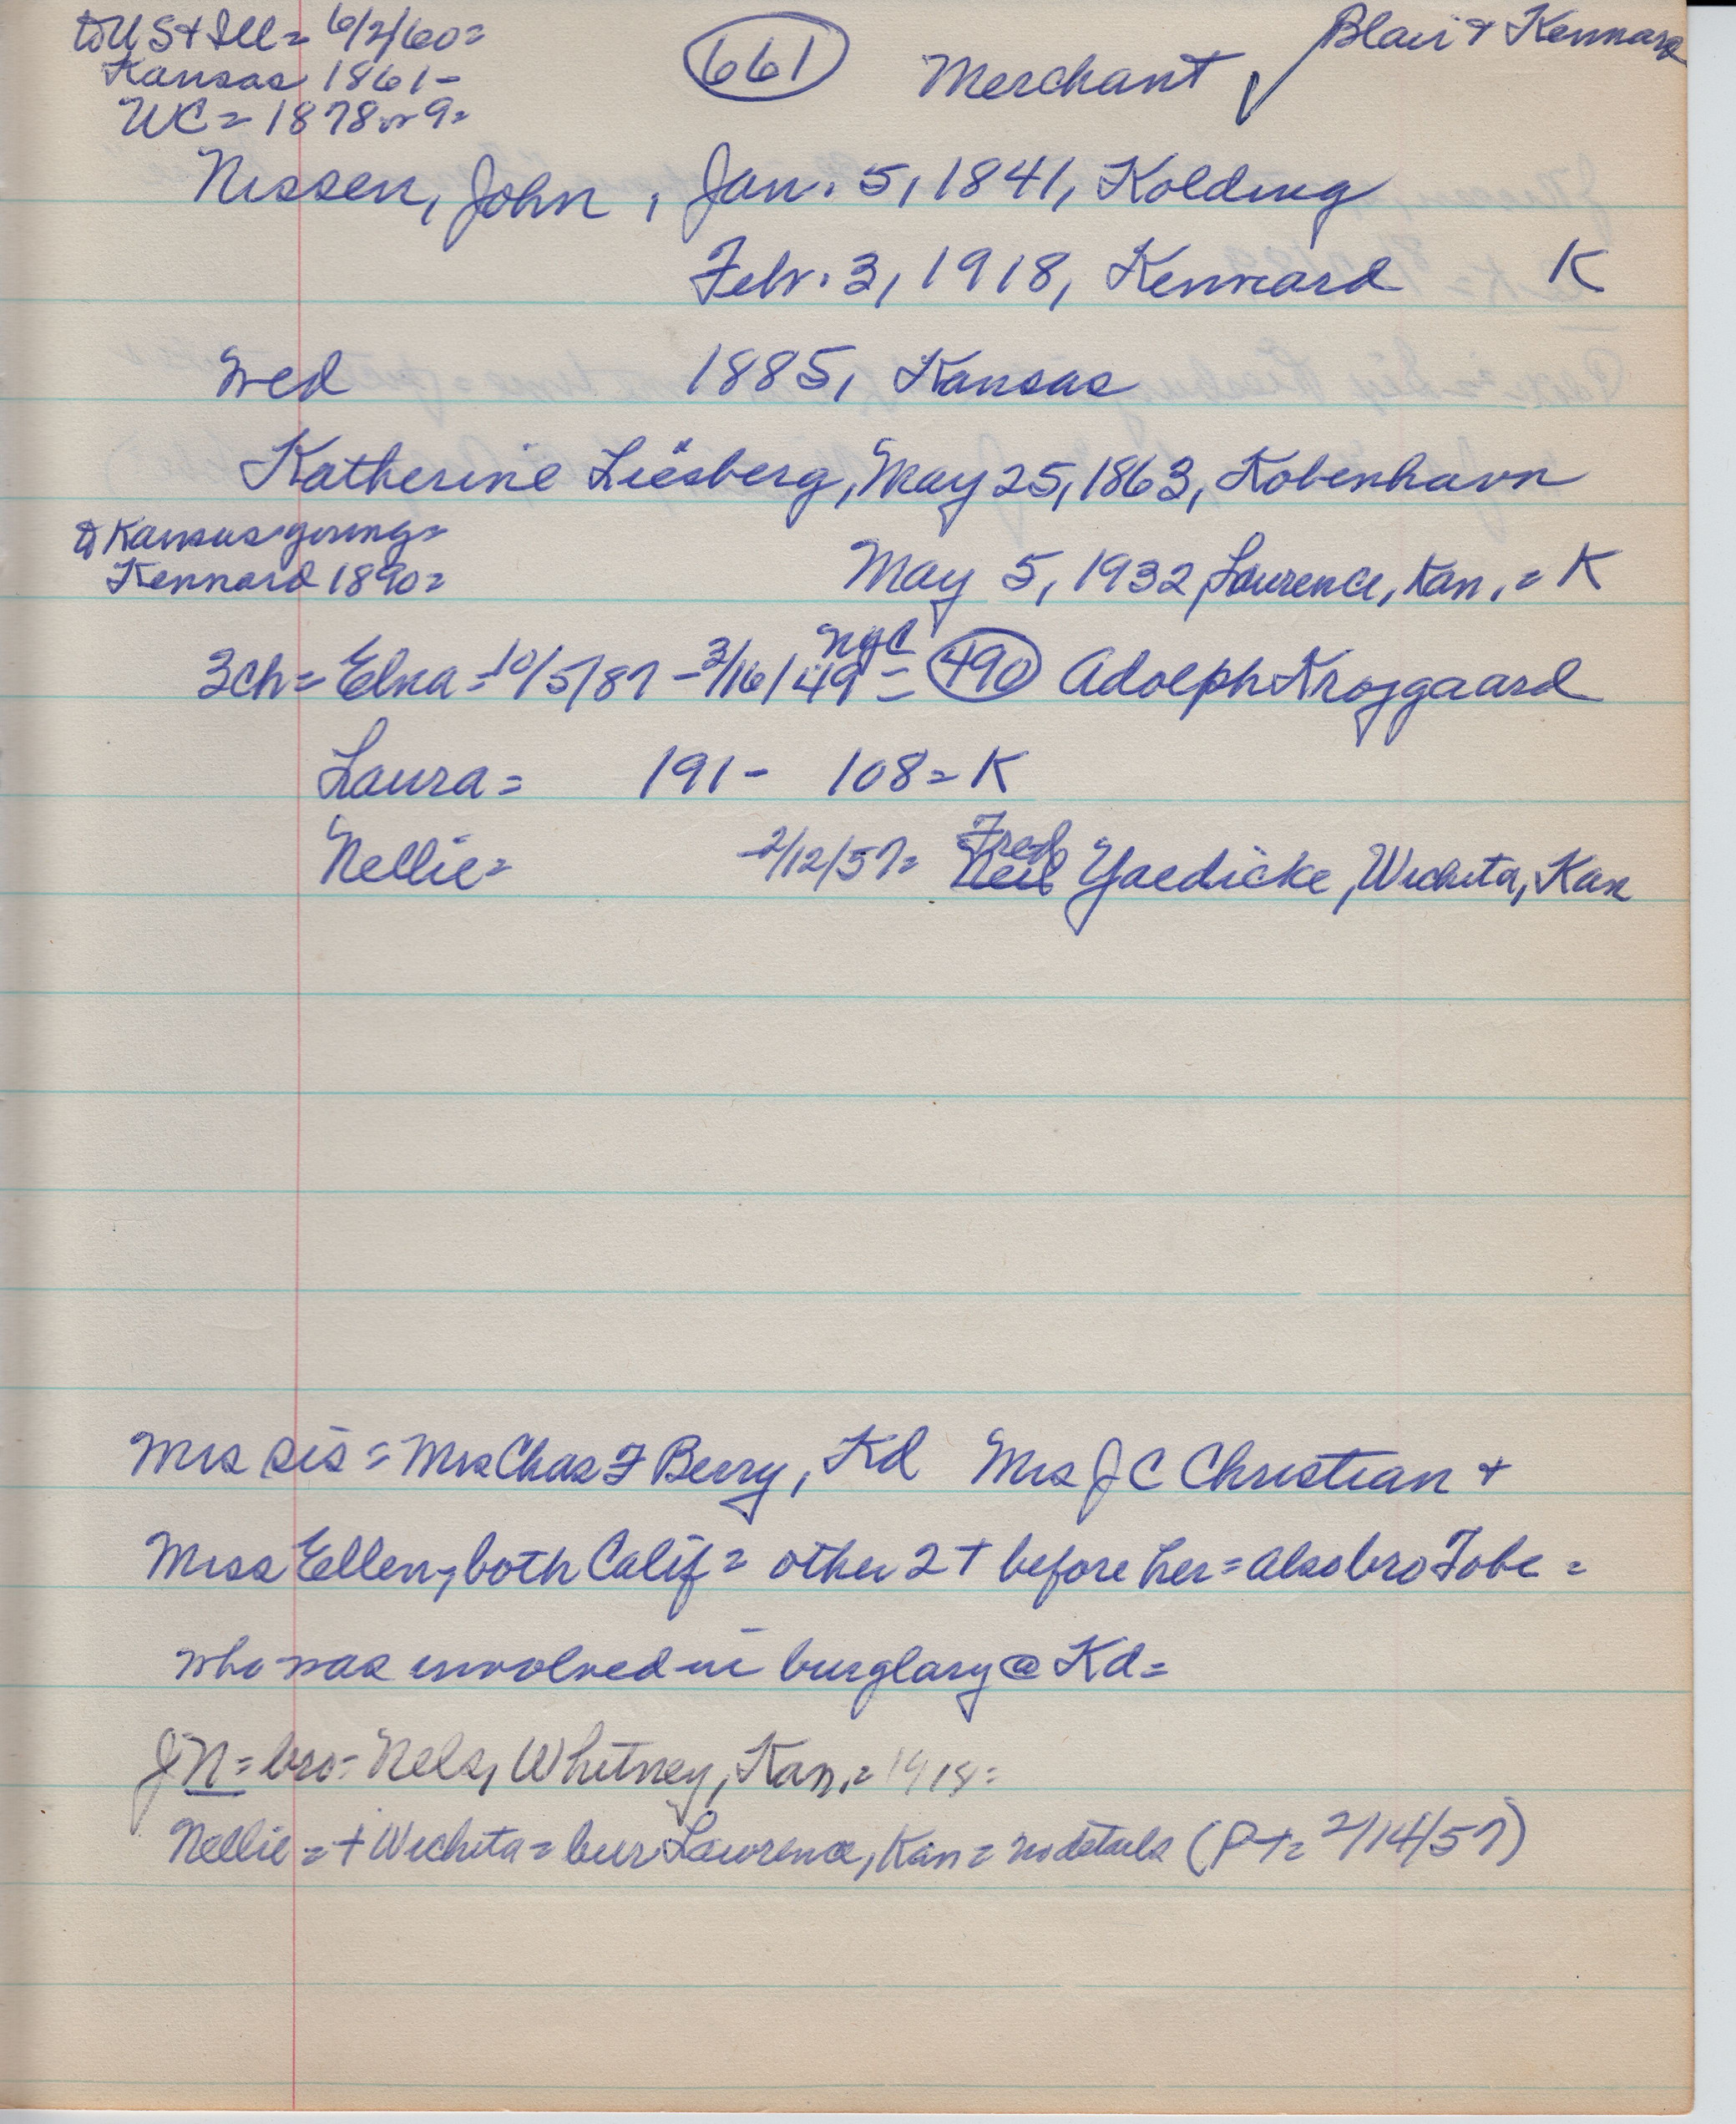 to US + Ill = 6/2/60 =
Kansas 1861 -
WC = 1878 or 9 =
661 Merchant ✓ Blair + Kennard
Nissen, John, Jan. 5, 1841, Kolding
Febr. 3, 1918, Kennard K
Wed 1885, Kansas
Katherine Liesberg, May 25, 1863, Kobenhavn
to Kansas young =
Kennard 1890 =
May 5, 1932 Lawrence, Kan., = K
3 ch = Elna = 10/5/87 - 3/16/49 NYC = 490 Adolph Kroggaard
Laura = 191 - 108 = K
Nellie = - 2/12/57 = Fred Neil Yaedicke, Wichita, Kan
Mrs sis = Mrs Chas F Berry, Kd Mrs J C Christian +
Miss Ellen, both Calif = other 2 + before her = also bro Tobe =
who was involved in burglary @ Kd =
JN = bro = Nels, Whitney, Kan. = 1918 =
Nellie = + Wichita = bur Lawrence, Kan = no details (PT = 2/14/57)